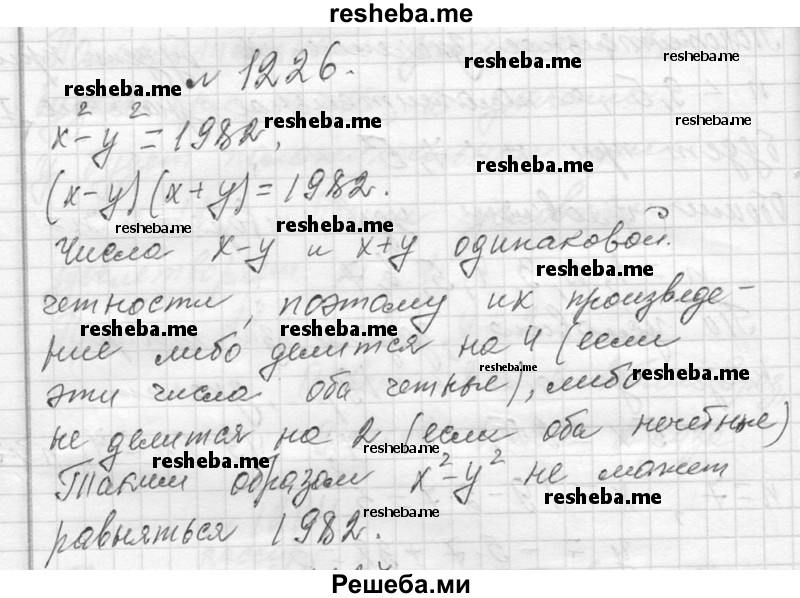 resheba.me
№ 1226.
resheba.me
resheba.me
resheba.me
x² - y² = 1982,
resheba.me
resheba.me
resheba.me
(x-y)(x+y) = 1982.
resheba.me
resheba.me
Числа x-y и x+y одинаковой
resheba.me
четности, поэтому их произведе-
resheba.me
resheba.me
ние либо делится на 4 (если
resheba.me
resheba.me
эти числа оба четные), либо
не делится на 2 (если оба нечетные)
resheba.me
resheba.me
Таким образом x² - y² не может
resheba.me
resheba.me
равняться 1982.
Решеба.ми